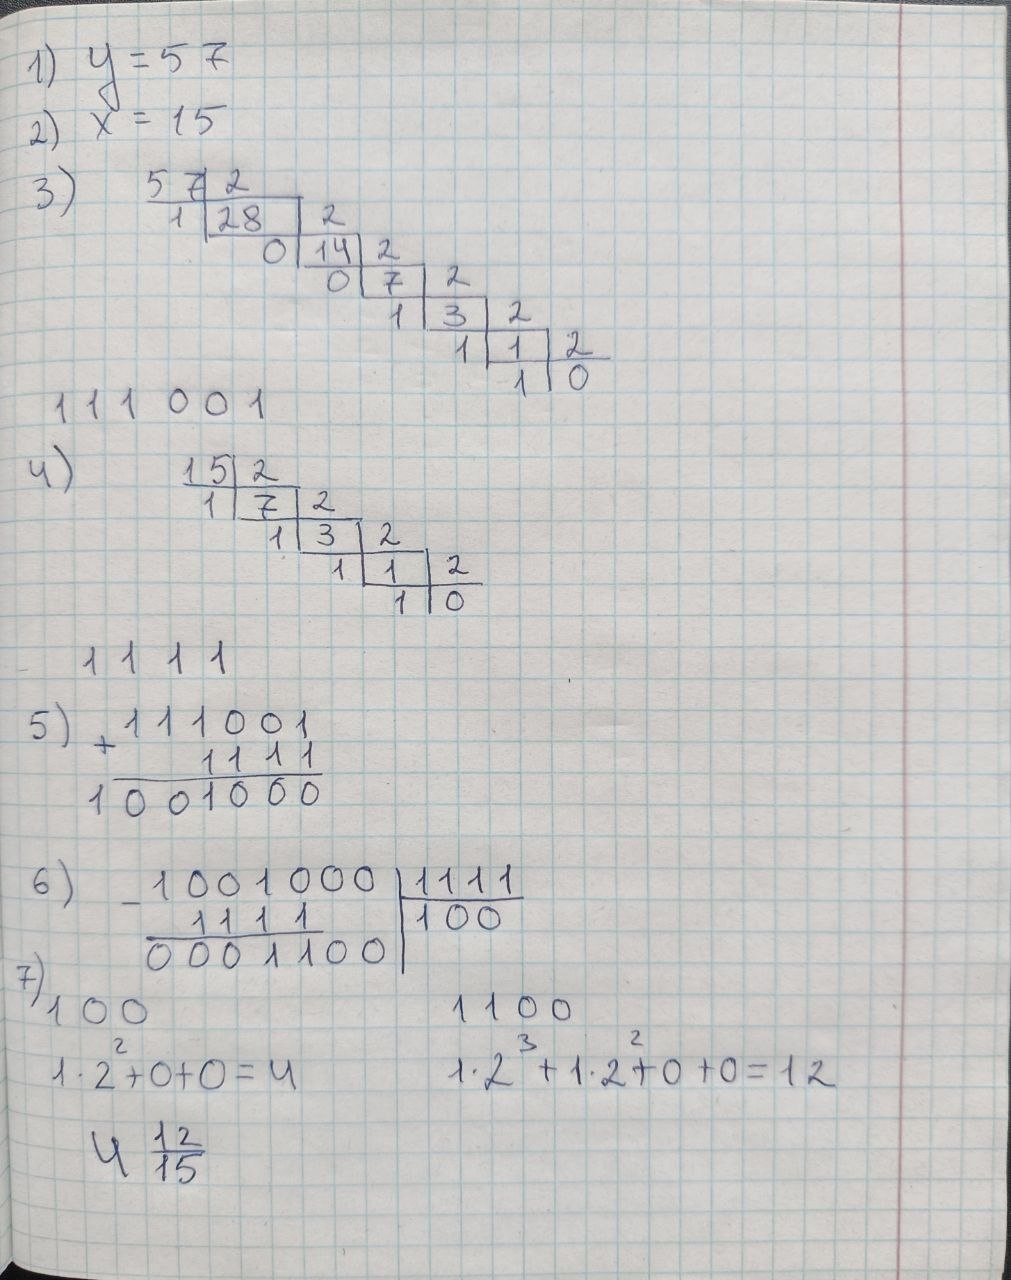 1) y = 57
2) x = 15
3) 57 2
1 28 2
0 14 2
0 7 2
1 3 2
1 1 2
1 0
111001
4) 15 2
1 7 2
1 3 2
1 1 2
1 0
1111
5) + 111001
1111
1001000
6) - 1001000 1111
1111 100
0001100
7) 100 1100
1·2²+0+0=4 1·2³+1·2²+0+0=12
4 12/15